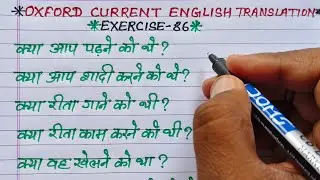 *OXFORD CURRENT ENGLISH TRANSLATION*
*EXERCISE-86*
क्या आप पढ़ने को थे?
क्या आप शादी करने को थे?
क्या रीता गाने को थी?
क्या रीता काम करने को थी?
क्या वह खेलने को था?